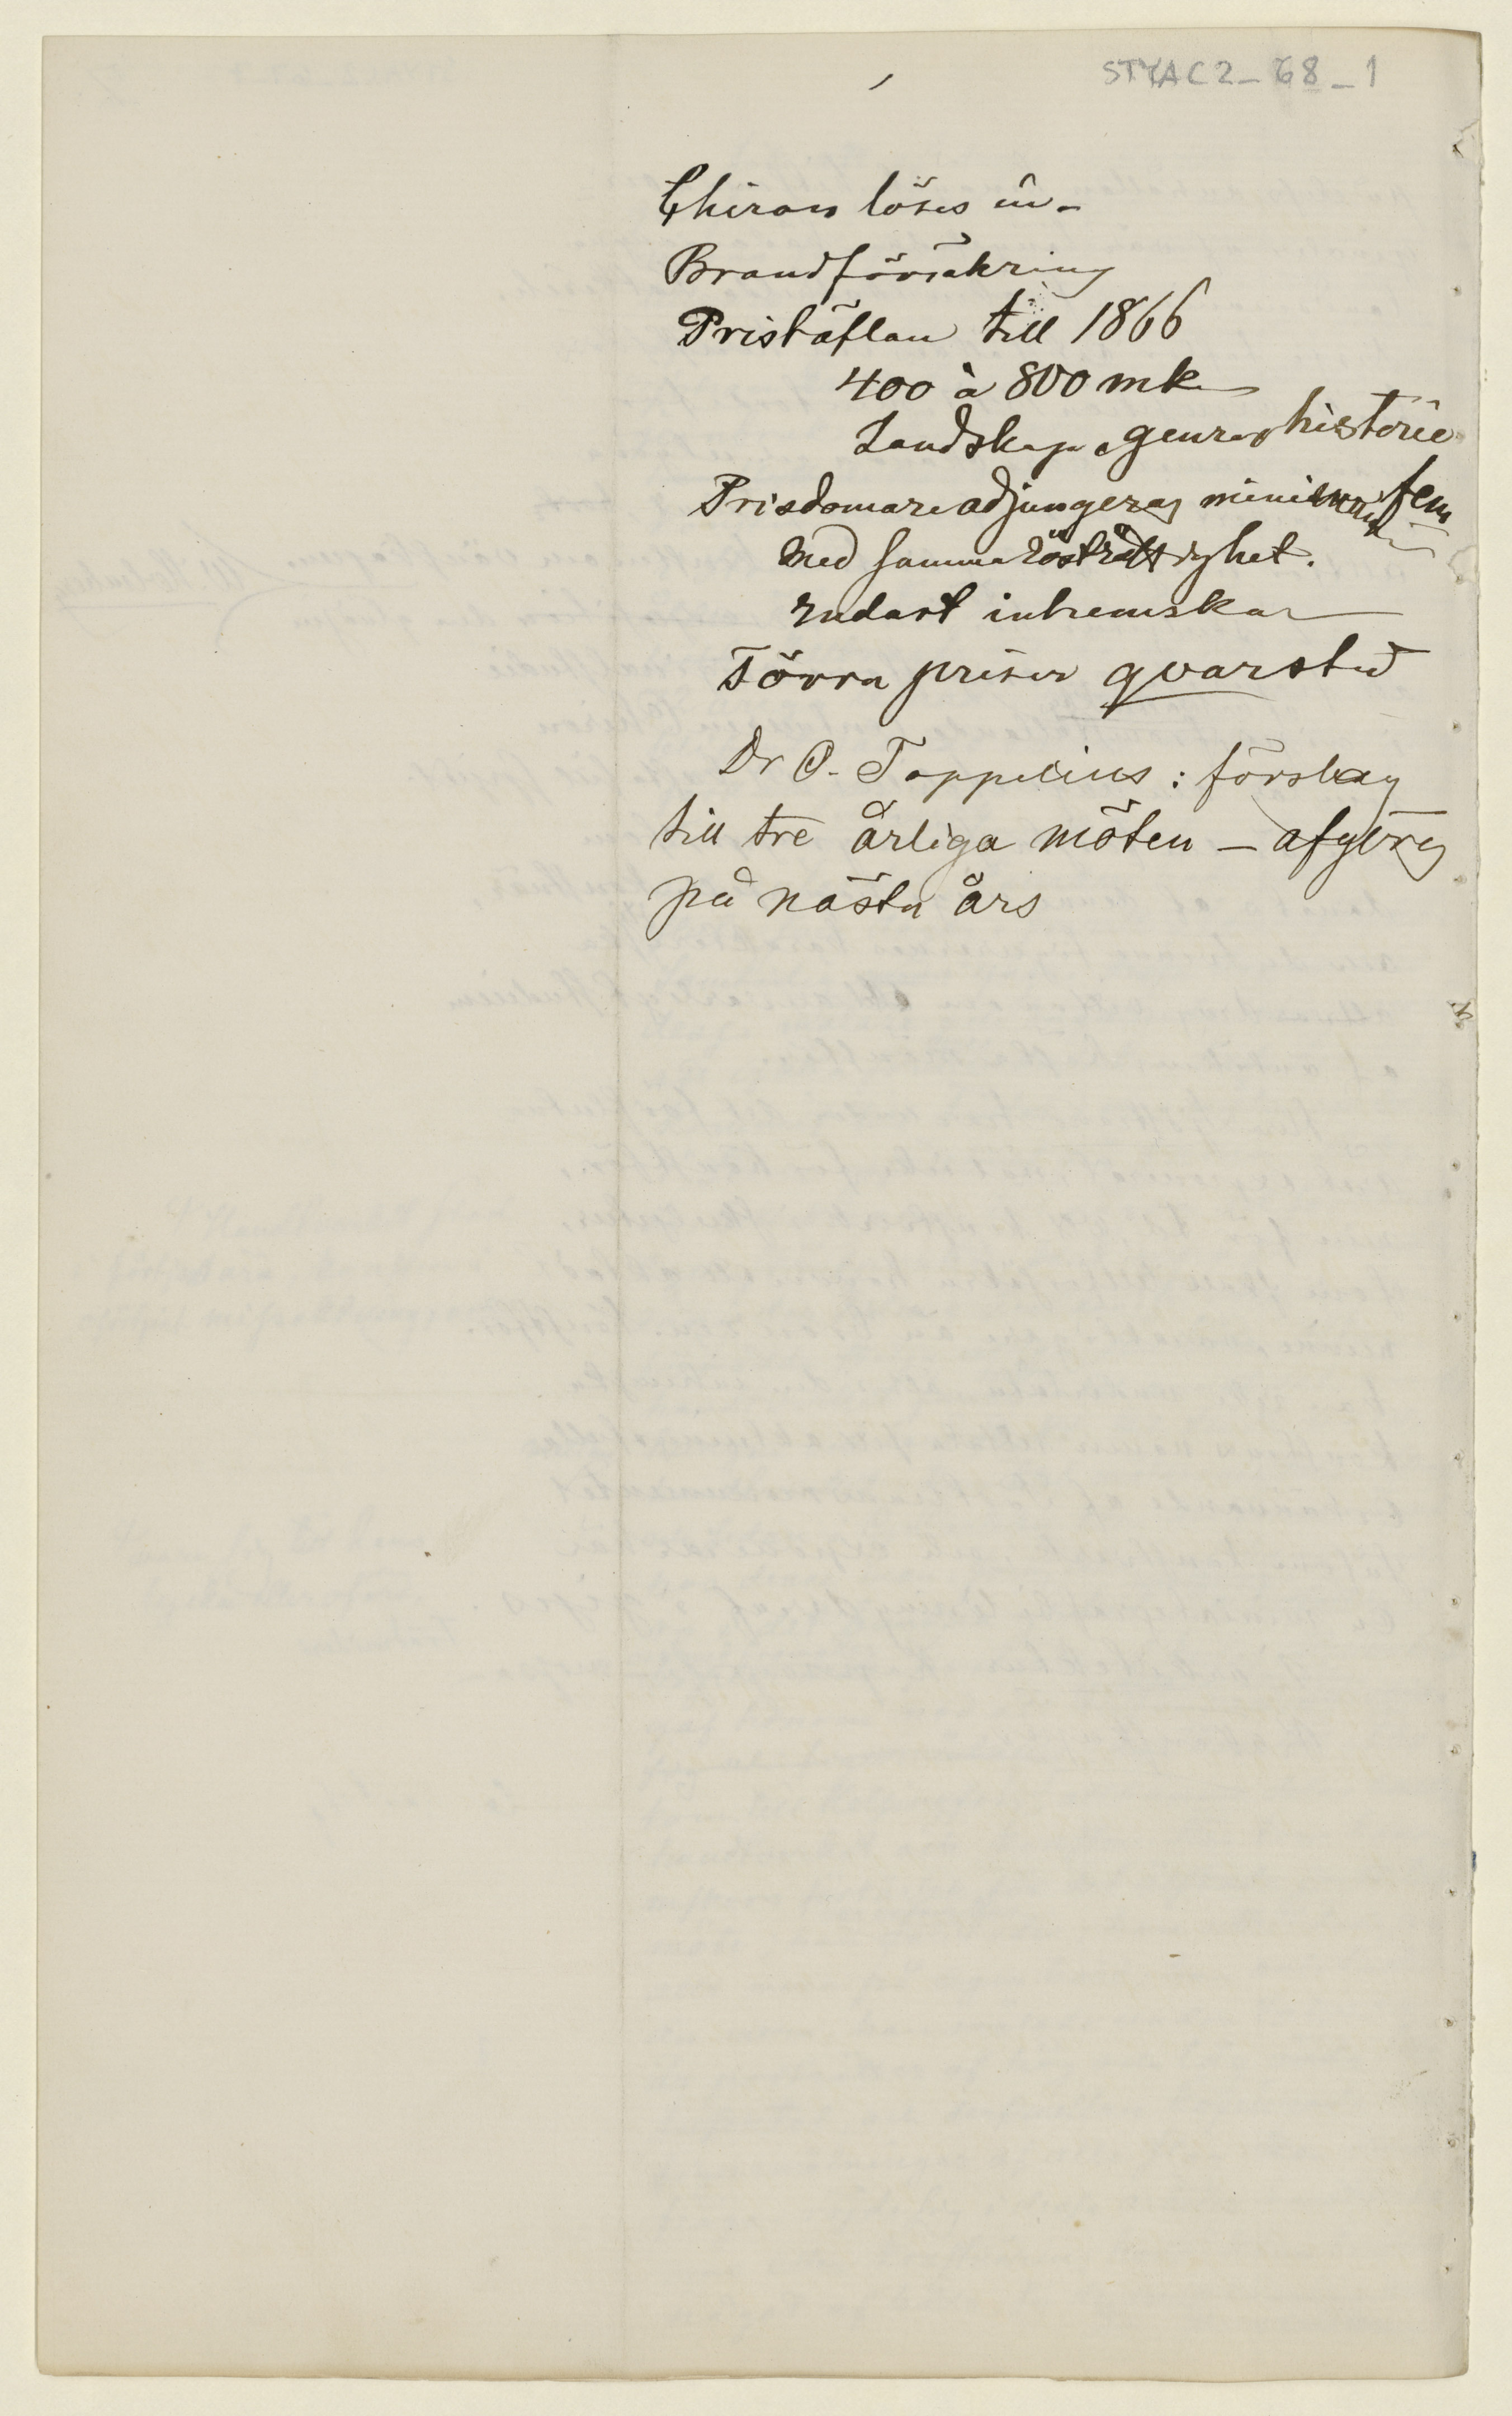 STYAC2_68_1
Chiraus löses in -
Brandförsäkring
Pristäflan till 1866
400 à 800 mk
Landskap genre historie
Prisdomare adjungeras minimum fem
med samma rösträttighet.
endast inhemska
Förra priser qvarstå
Dr O. Toppelius: förslag
till tre årliga möten – afgöres
på nästa års